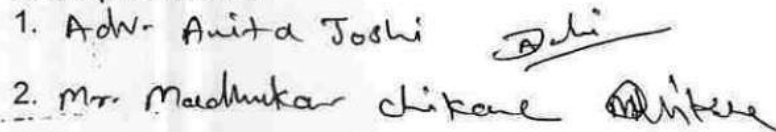 1. Adv. Anita Joshi
2. Mr. Madhukar Chikane